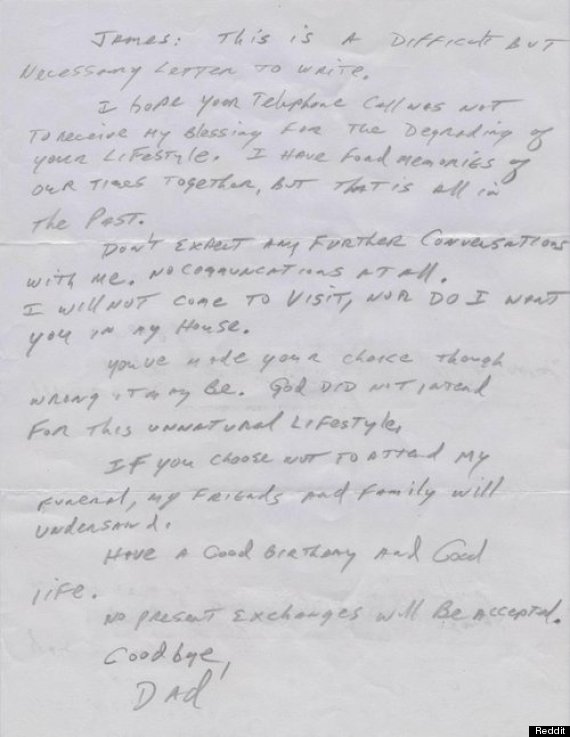 James: This is a Difficult But
Necessary Letter to write.
I hope your Telephone Call was not
To receive my Blessing For the Degrading of
your Lifestyle. I have fond memories of
our times together, But that is all in
the Past.
Don't Expect any Further Conversations
with me. No Communcations at all.
I will not come to Visit, nor do I want
you in my House.
You've made your choice though
wrong it may be. God did not intend
For this unnatural Lifestyle.
If you choose not to attend my
Funeral, my Friends and Family will
understand.
Have a Good Birthday and Good
Life.
No present exchanges will Be accepted.
Goodbye,
Dad
Reddit